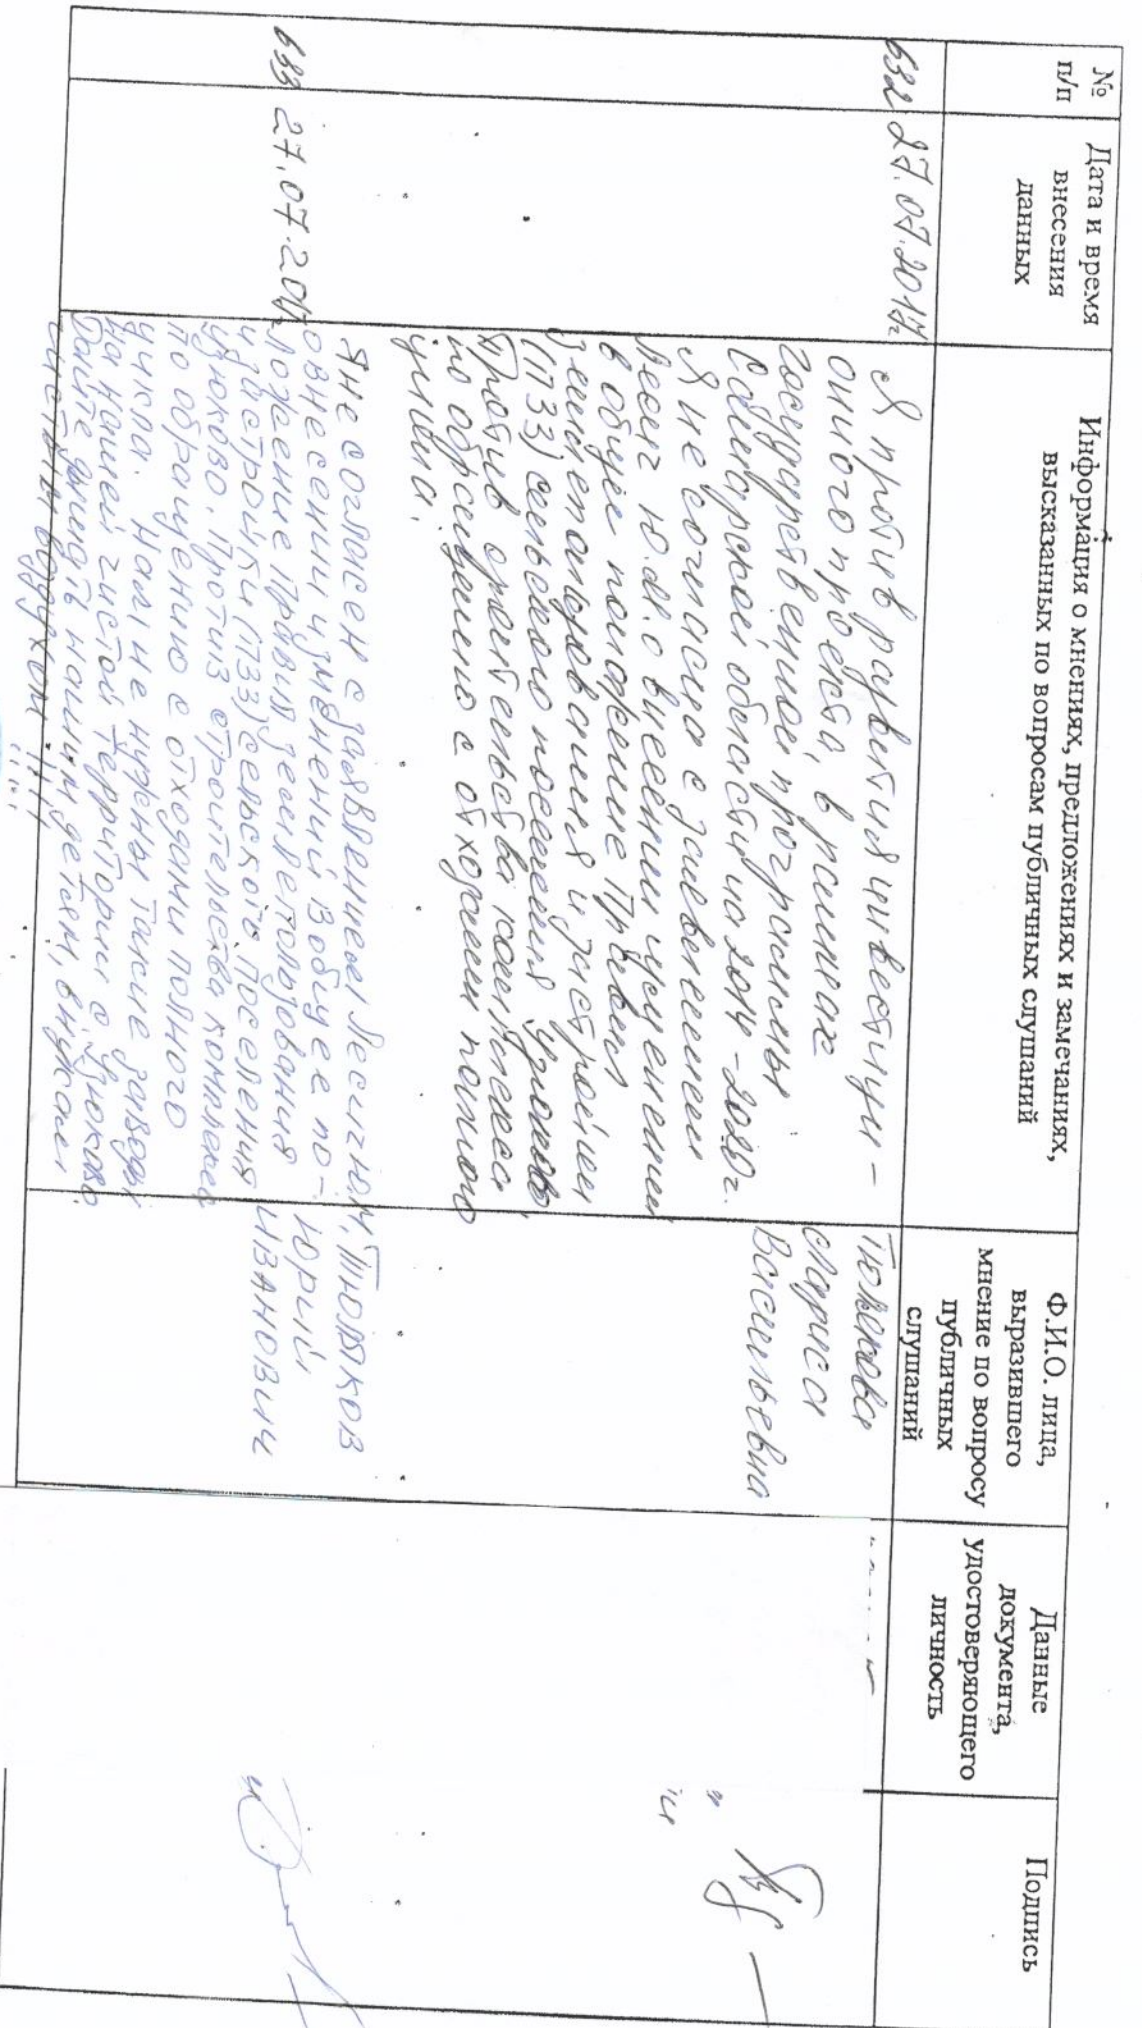 № п/п
Дата и время внесения данных
Информация о мнениях, предложениях и замечаниях, высказанных по вопросам публичных слушаний
Ф.И.О. лица, выразившего мнение по вопросу публичных слушаний
Данные документа, удостоверяющего личность
Подпись
632
27.07.2017г.
Я против развития инвестици-
онного проекта, в рамках
государственной программы
Самарской области на 2014-2020г.
Я не согласна с заявлением
Лесиг Ю.М. о внесении изменений
в общее положение Правил
землепользования и застройки
(ПЗЗ) сельского поселения Узюково,
Против строительства комплекса
по обращению с отходами полного
цикла.
Тюлькова
Лариса
Васильевна
633
27.07.2017г.
Я не согласен с заявлением Лесиг Ю.М,
о внесении изменений в общее по-
ложение Правил землепользования
и застройки (ПЗЗ) сельского поселения
Узюково. Против строительства комплекса
по обращению с отходами полного
цикла. Нам не нужны такие заводы
на нашей чистой территории с. Узюково.
Дайте дышать нашим детям, внукам
чистым воздухом!!!!
Юрий
Иванович